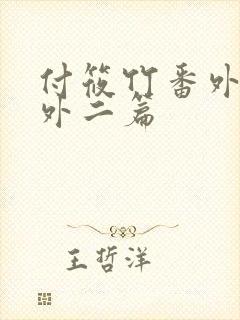 付筱竹番外
外二篇
王哲洋